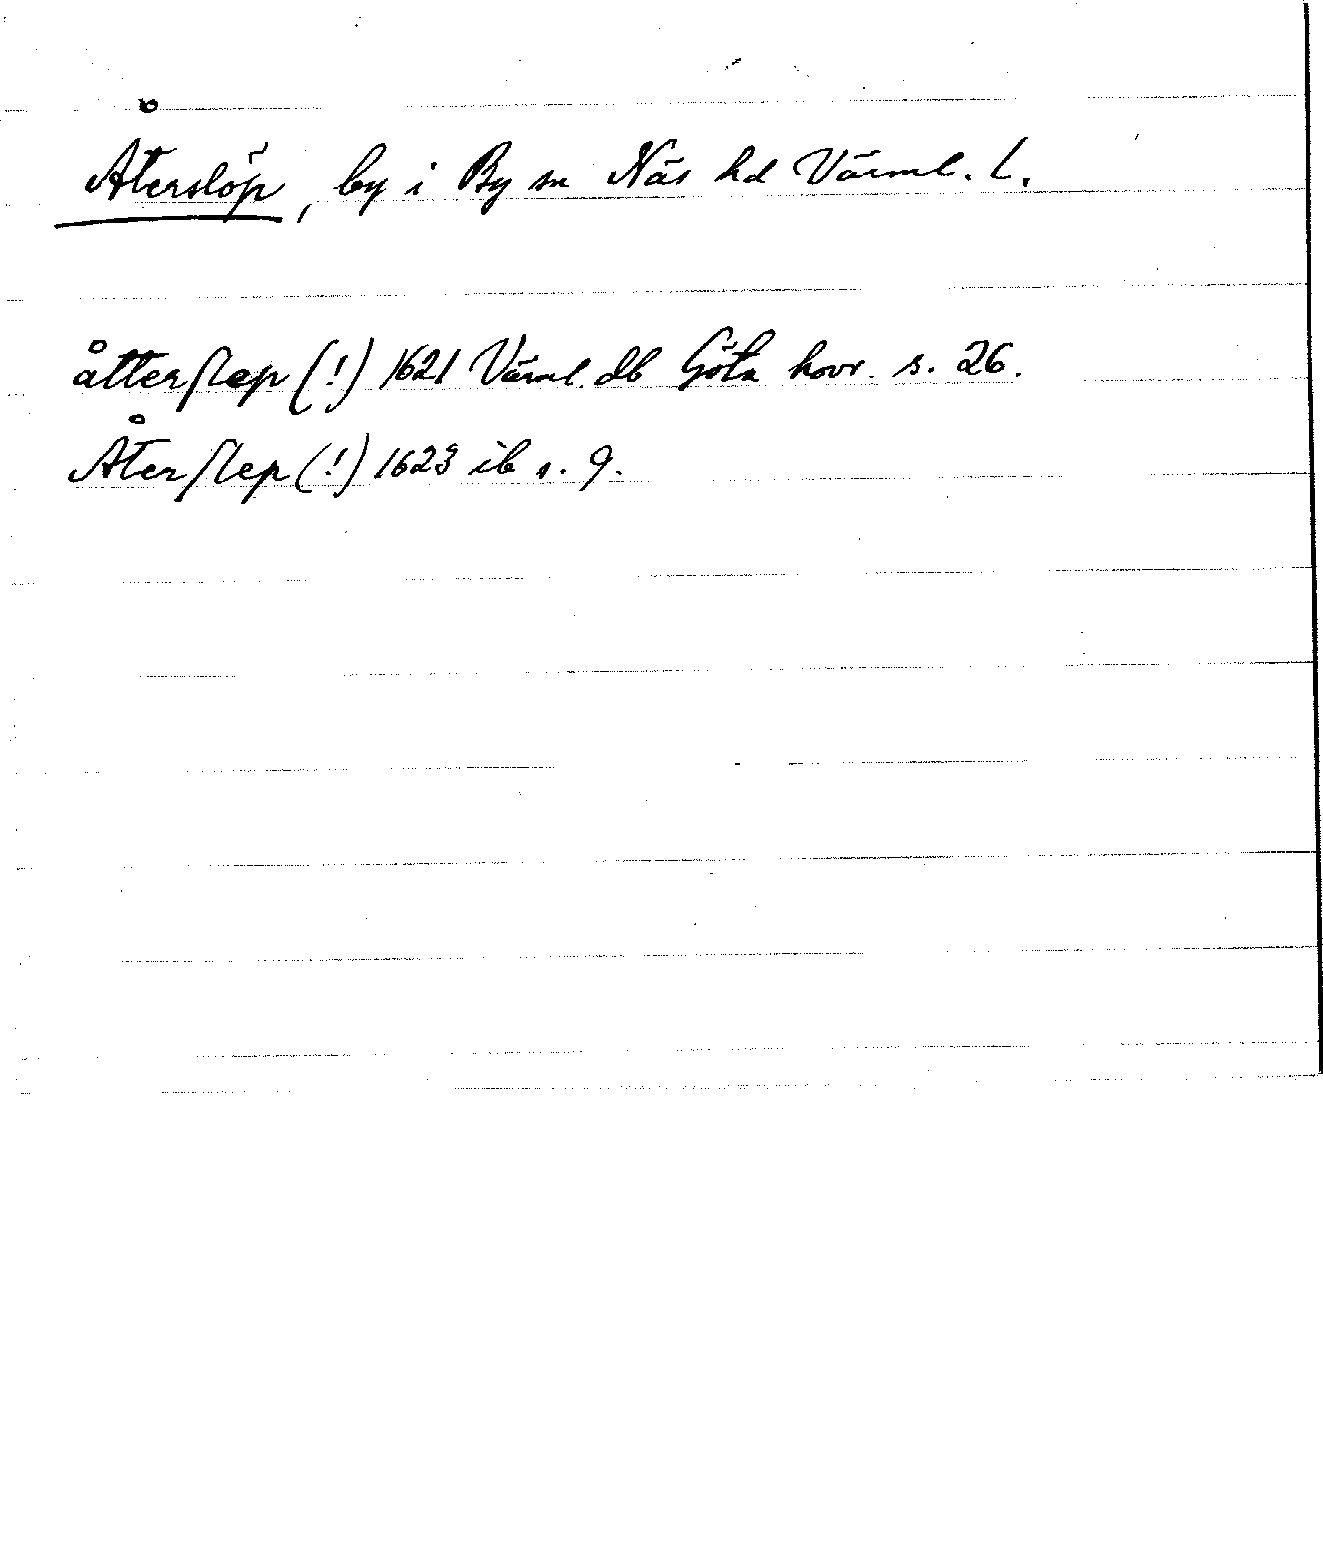 Återslöp, by i By sn Näs hd Värml. l.
åtterſlep (!) 1621 Värml. db Göta hovr. s. 26.
Återſlep (!) 1623 ib s. 9.